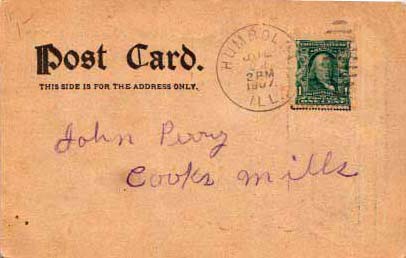 Post Card.
THIS SIDE IS FOR THE ADDRESS ONLY.
HUMBOLDT
2 PM
1907
ILL.
John Perry
Cooks Mills